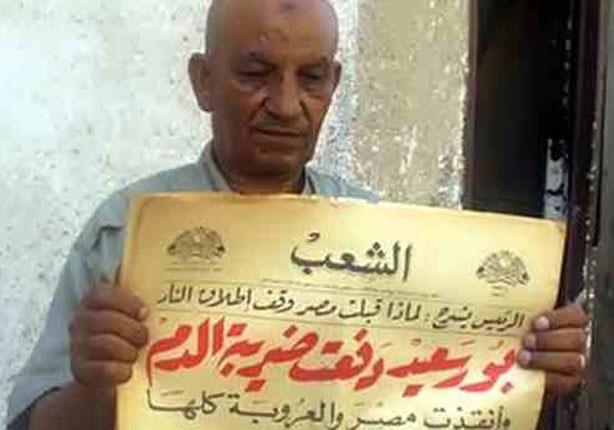 الشعب
الرئيس يشرح : لماذا قبلت مصر وقف اطلاق النار
بور سعيد دفعت ضريبة الدم
وأنقذت مصر والعروبة كلها